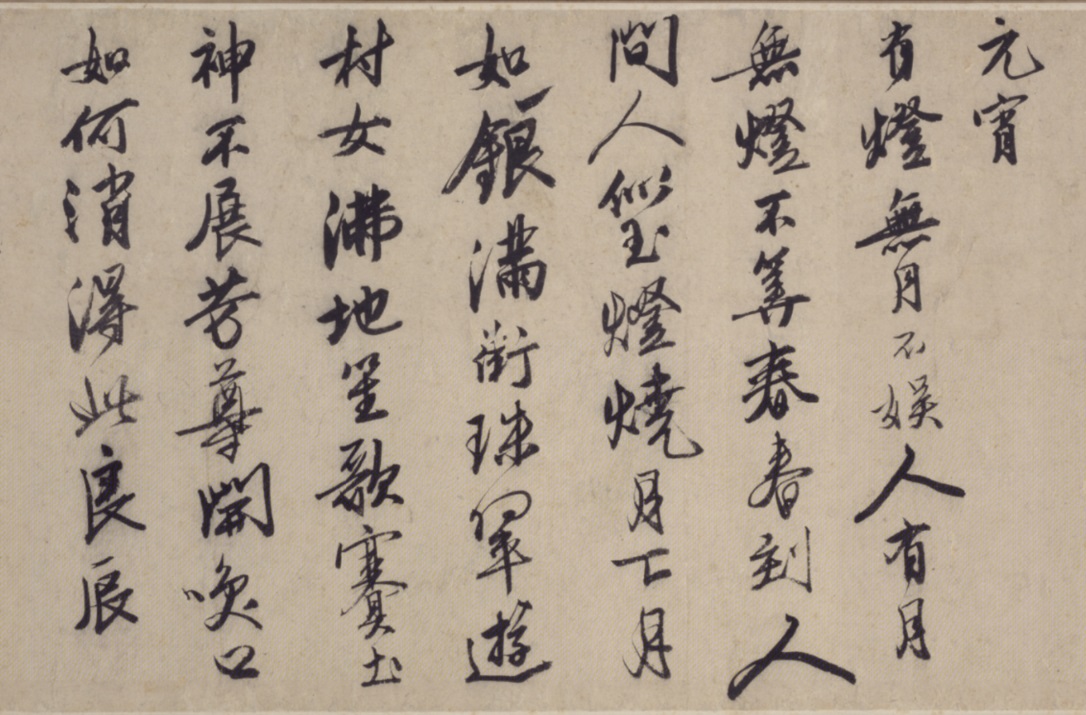 元宵
有燈無月不娛人有月
無燈不筭春春到人
間人似玉燈燒月下月
如銀滿街珠翠遊
村女沸地笙歌賽土
神不展芳尊開咲口
如何消得此良辰